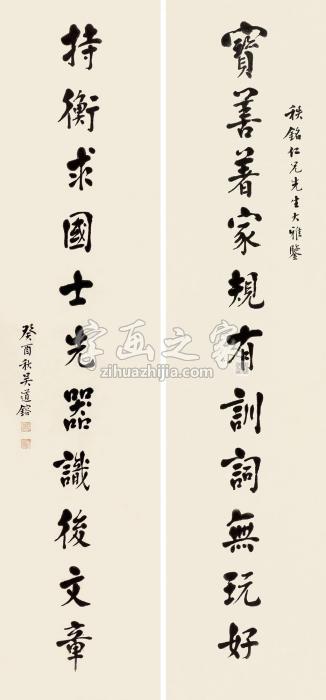 秩銘仁兄先生大雅鑒
寶善著家規有訓詞無玩好
持衡求國士先器識後文章
癸酉秋吴道鎔
字画之家
zihuazhijia.com